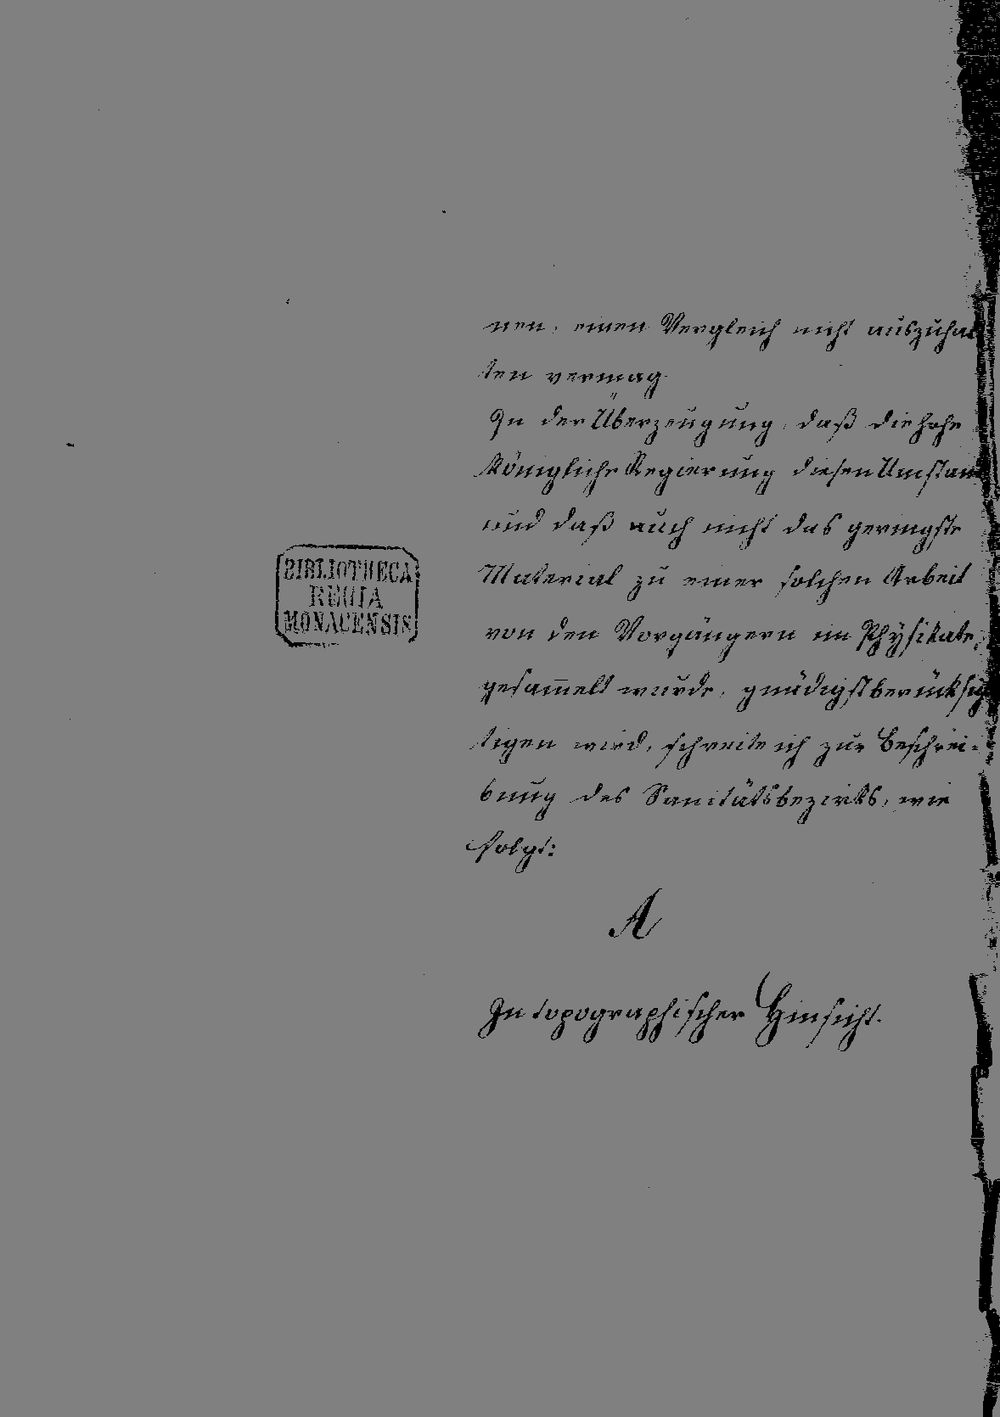 nen, einen Vergleich nicht auszuhal
ten vermag.
In der Überzeugung, daß die hohe
Königliche Regierung diesen Umstand
und daß auch nicht das geringste
Material zu einer solchen Arbeit
von den Vorgängern im Physikate,
gesam̄elt wurde, gnädigst berücksich
tigen wird, schreite ich zur Beschrei-
bung des Sanitätsbezirks, wie
folgt:
BIBLIOTHECA
REGIA
MONACENSIS
A
In topographischer Hinsicht.